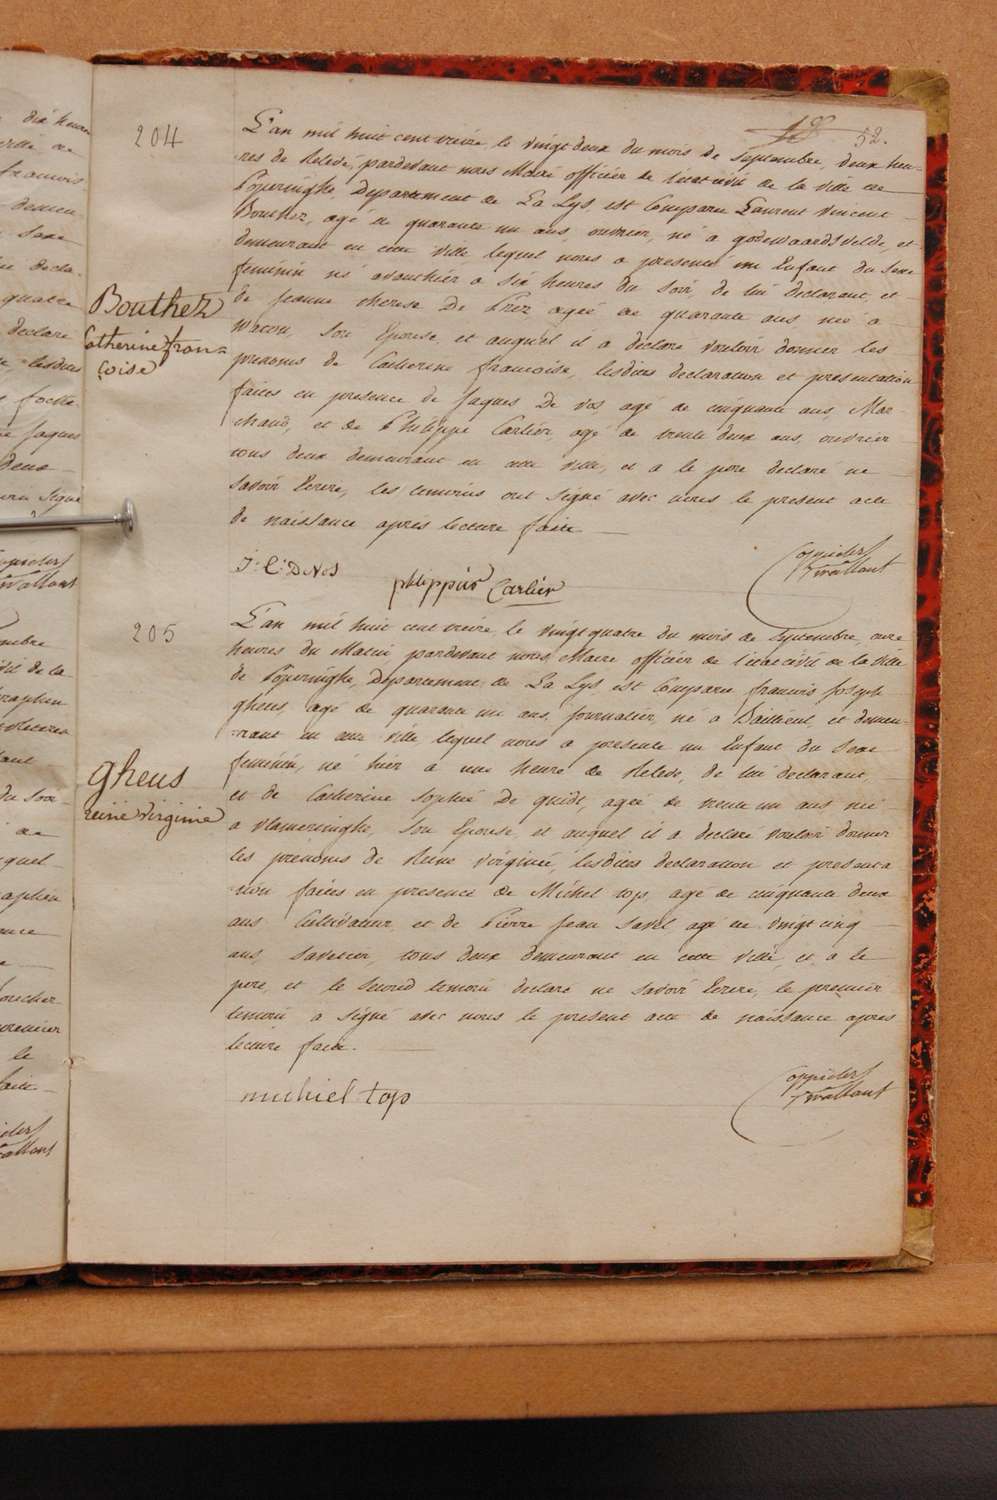 52.
204
L'an mil huit cent treize, le vingt deux du mois de Septembre, deux heu-
res de relevé, pardevant nous Maire officier de l'état civil de la ville de
Poperinghe, Departement de La Lys, est Comparu Laurent Vincent
Bouthez, agé de quarante un ans, ouvrier, né a godewaardsvelde, et
demeurant en cette ville lequel nous a presenté un Enfant du Sexe
feminin né avanthier a six heures du Soir de lui declarant et
de Jeanne therese De Prez agée de quarante ans née a
Watou, Son Epouse, et auquel il a declaré vouloir donner les
prenoms de Catherine francoise, lesdites declaration et presentation
faites en presence de Jaques De Vos agé de cinquante ans, Mar-
chand, et de Philippe Carlier, agé de trente deux ans, ouvrier
tous deux demeurant en cette ville, et a le pere declaré ne
Savoir Ecrire, les temoins ont signé avec nous le present acte
de naissance apres lecture faite
Bouthez
Catherine fran=
coise
J: C: D Vos
philippus Carlier
205
L'an mil huit cent treize, le vingt quatre du mois de Septembre, onze
heures du Matin, pardevant nous Maire officier de l'état civil de la ville
de Poperinghe, Departement de La Lys est Comparu francois Joseph
gheus, agé de quarante un ans, journalier, né a Bailleul et demeu-
rant en cette ville lequel nous a presenté un Enfant du Sexe
feminin, né hier a une heure de Relevé, de lui declarant,
et de Catherine Sophie De quidt, agée de trente un ans née
a Vlamertinghe, Son Epouse, et auquel il a declaré vouloir donner
les prénoms de Reine Virginie, lesdites declaration et presenta
tion faites en presence de Michel top agé de cinquante deux
ans Cultivateur, et de Pierre Jean agé de vingt cinq
ans, Savetier, tous deux demeurant en cette ville, et a le
pere, et le Second temoin declaré ne Savoir Ecrire, le premier
temoin a signé avec nous le present acte de naissance apres
lecture faite.
gheus
reine Virginie
michiel top